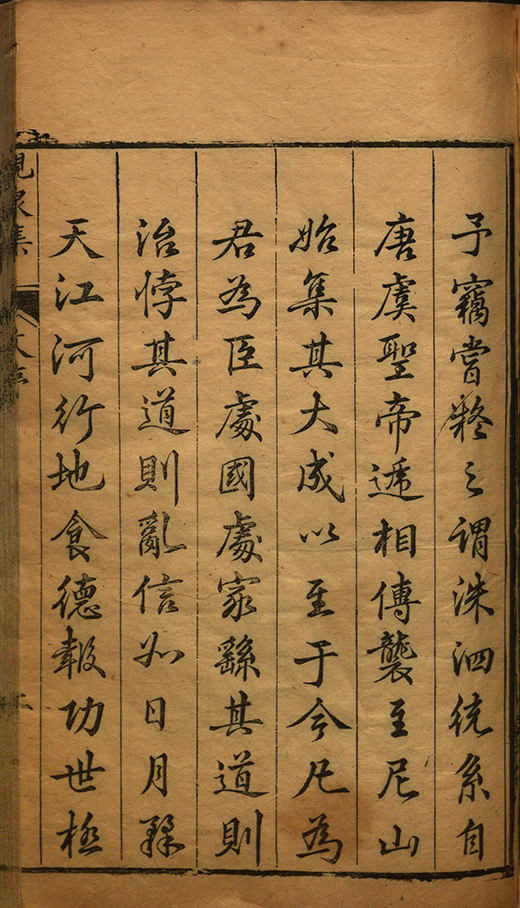 予竊嘗疑之謂洙泗統系自
唐虞聖帝遞相傳襲至尼山
始集其大成以至于今凡為
君為臣處國處家繇其道則
治悖其道則亂信如日月繇
天江河行地食德報功世極
泉集